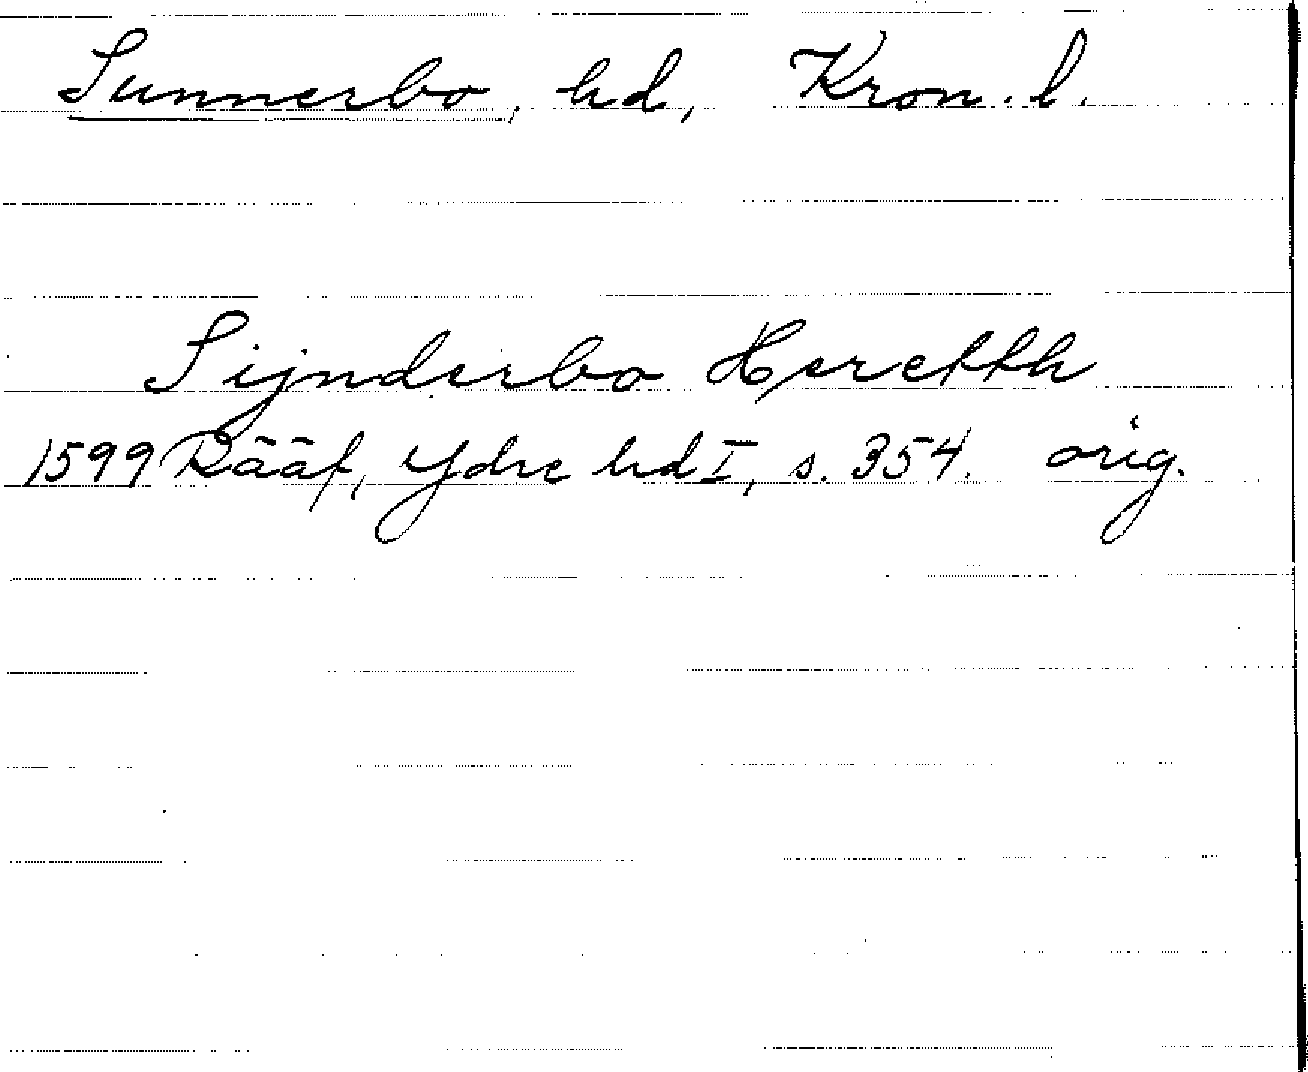 Sunnerbo, hd, Kron. l.
Sijnderbo Herekth
1599 Rääf, Ydre hd I, s. 354. orig.